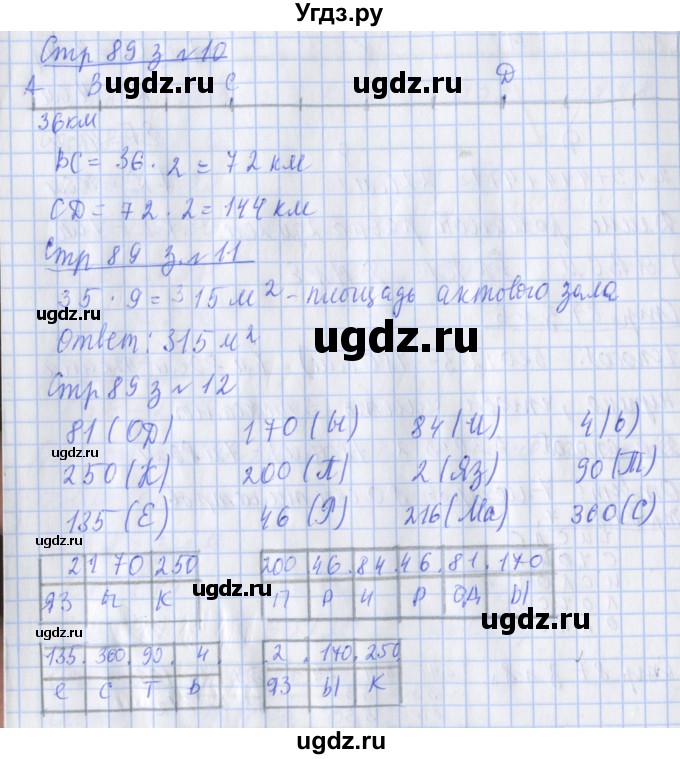 Угдз.ру
Стр 89 з №10
ugdz.ru ugdz.ru
А В С Д
36км
ВС = 36 · 2 = 72 км
СД = 72 · 2 = 144 км
Стр 89 з №11
35 · 9 = 315 м² - площадь актового зала
ugdz.ru
ugdz.ru
Ответ: 315 м²
Стр 89 з №12
81 (ОД) 170 (Ы) 84 (И) 4 (Ь)
250 (К) 200 (П) 2 (ЯЗ) 90 (Т)
ugdz.ru
135 (Е) 46 (Р) 216 (Ма) 360 (С)
2 170 250 200 . 46 . 84 . 46 . 81 . 170
ugdz.ru ugdz.ru
ЯЗ Ы К П Р И Р ОД Ы
ugdz.ru
135 . 360 . 90 . 4 . 2 . 170 . 250
е С Т Ь ЯЗ Ы К
ugdz.ru
ugdz.ru